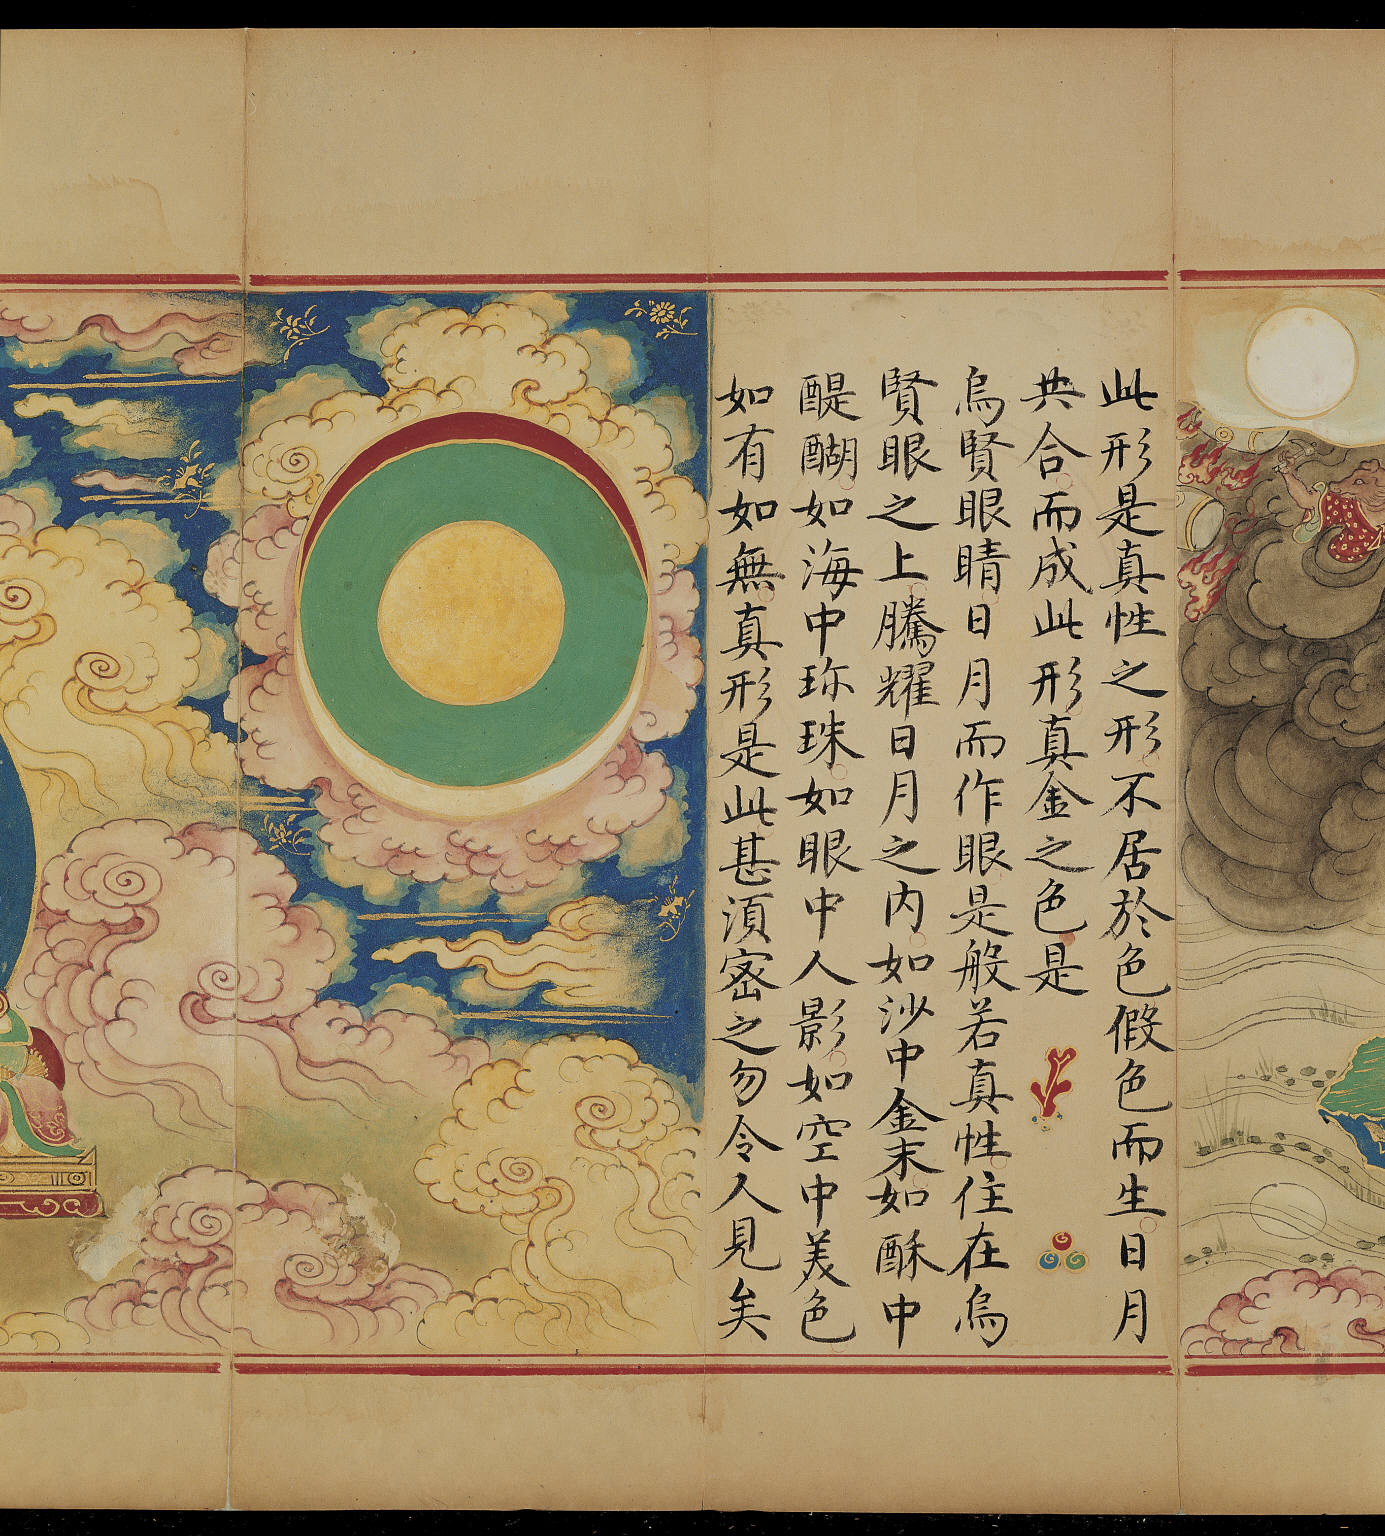 此形是真性之形不居於色假色而生日月
共合而成此形真金之色是
烏賢眼睛日月而作眼是般若真性住在烏
賢眼之上騰耀日月之內如沙中金末如酥中
醍醐如海中珎珠如眼中人影如空中美色
如有如無真形是此甚湏宻之勿令人見矣